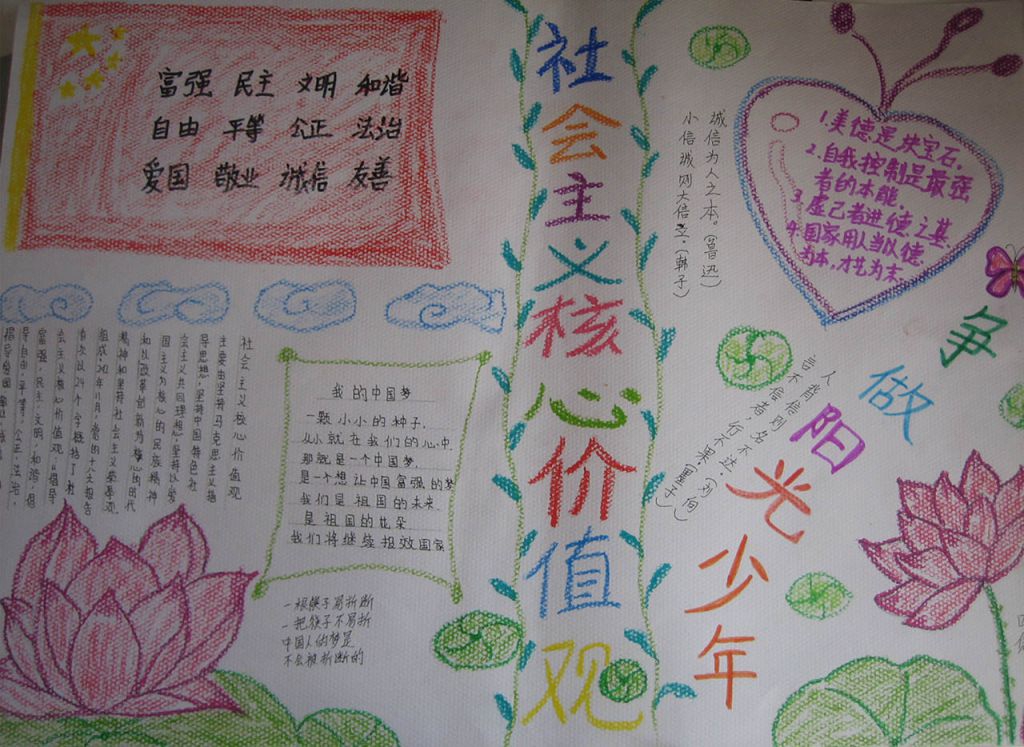 富强 民主 文明 和谐
自由 平等 公正 法治
爱国 敬业 诚信 友善
社会主义核心价值观
主要由坚持马克思主义指
导思想,坚持中国特色社
会主义共同理想,坚持以爱
国主义为核心的民族精神
和以改革创新为核心的时代
精神和坚持社会主义荣辱观
组成,
首次以24个字概括了社
会主义核心价值观:"倡导
富强、民主、文明、和谐,倡
导自由、平等、公正、法治,
我的中国梦
一颗小小的种子,
从小就在我们的心中
那就是一个中国梦,
是一个想让中国富强的梦
我们是祖国的未来
是祖国的花朵
我们将继续报效国家
一根筷子易折断
一把筷子不易折
中国人的梦是
不会被折断的
社会主义核心价值观
诚信为人之本。(鲁迅)
小信诚则大信立.(韩子)
1.美德是块宝石。
2.自我控制是最强
者的本能.
3.虚己者进德之基
4.国家用人当以德
为本,才艺为末
人背信则名不达.(刘向)
言不信者,行不果.(墨子)
争做阳光少年